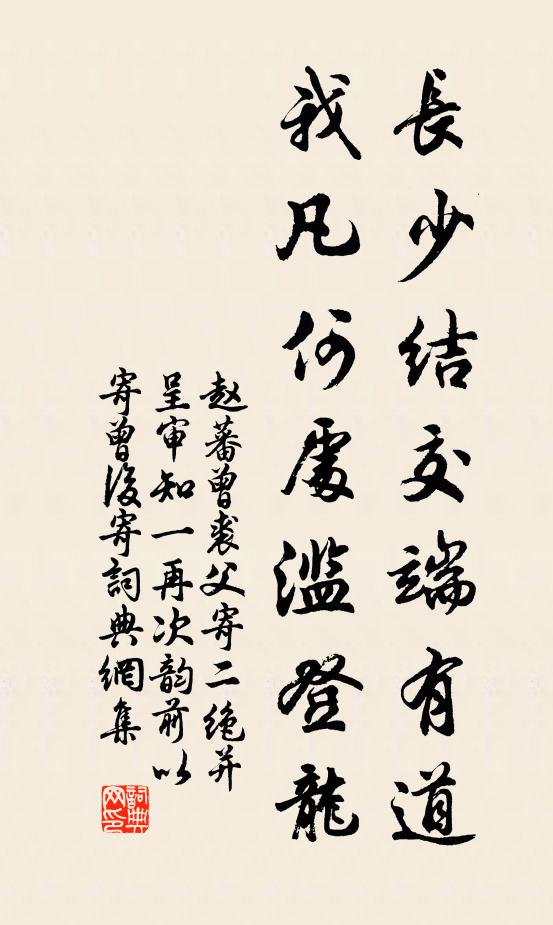 長少结交端有道
我凡何處滥登龍
赵蕃曾裘父寄二绝并
呈审知一再次韵前以
寄曾後寄詞典網集
詞典网印